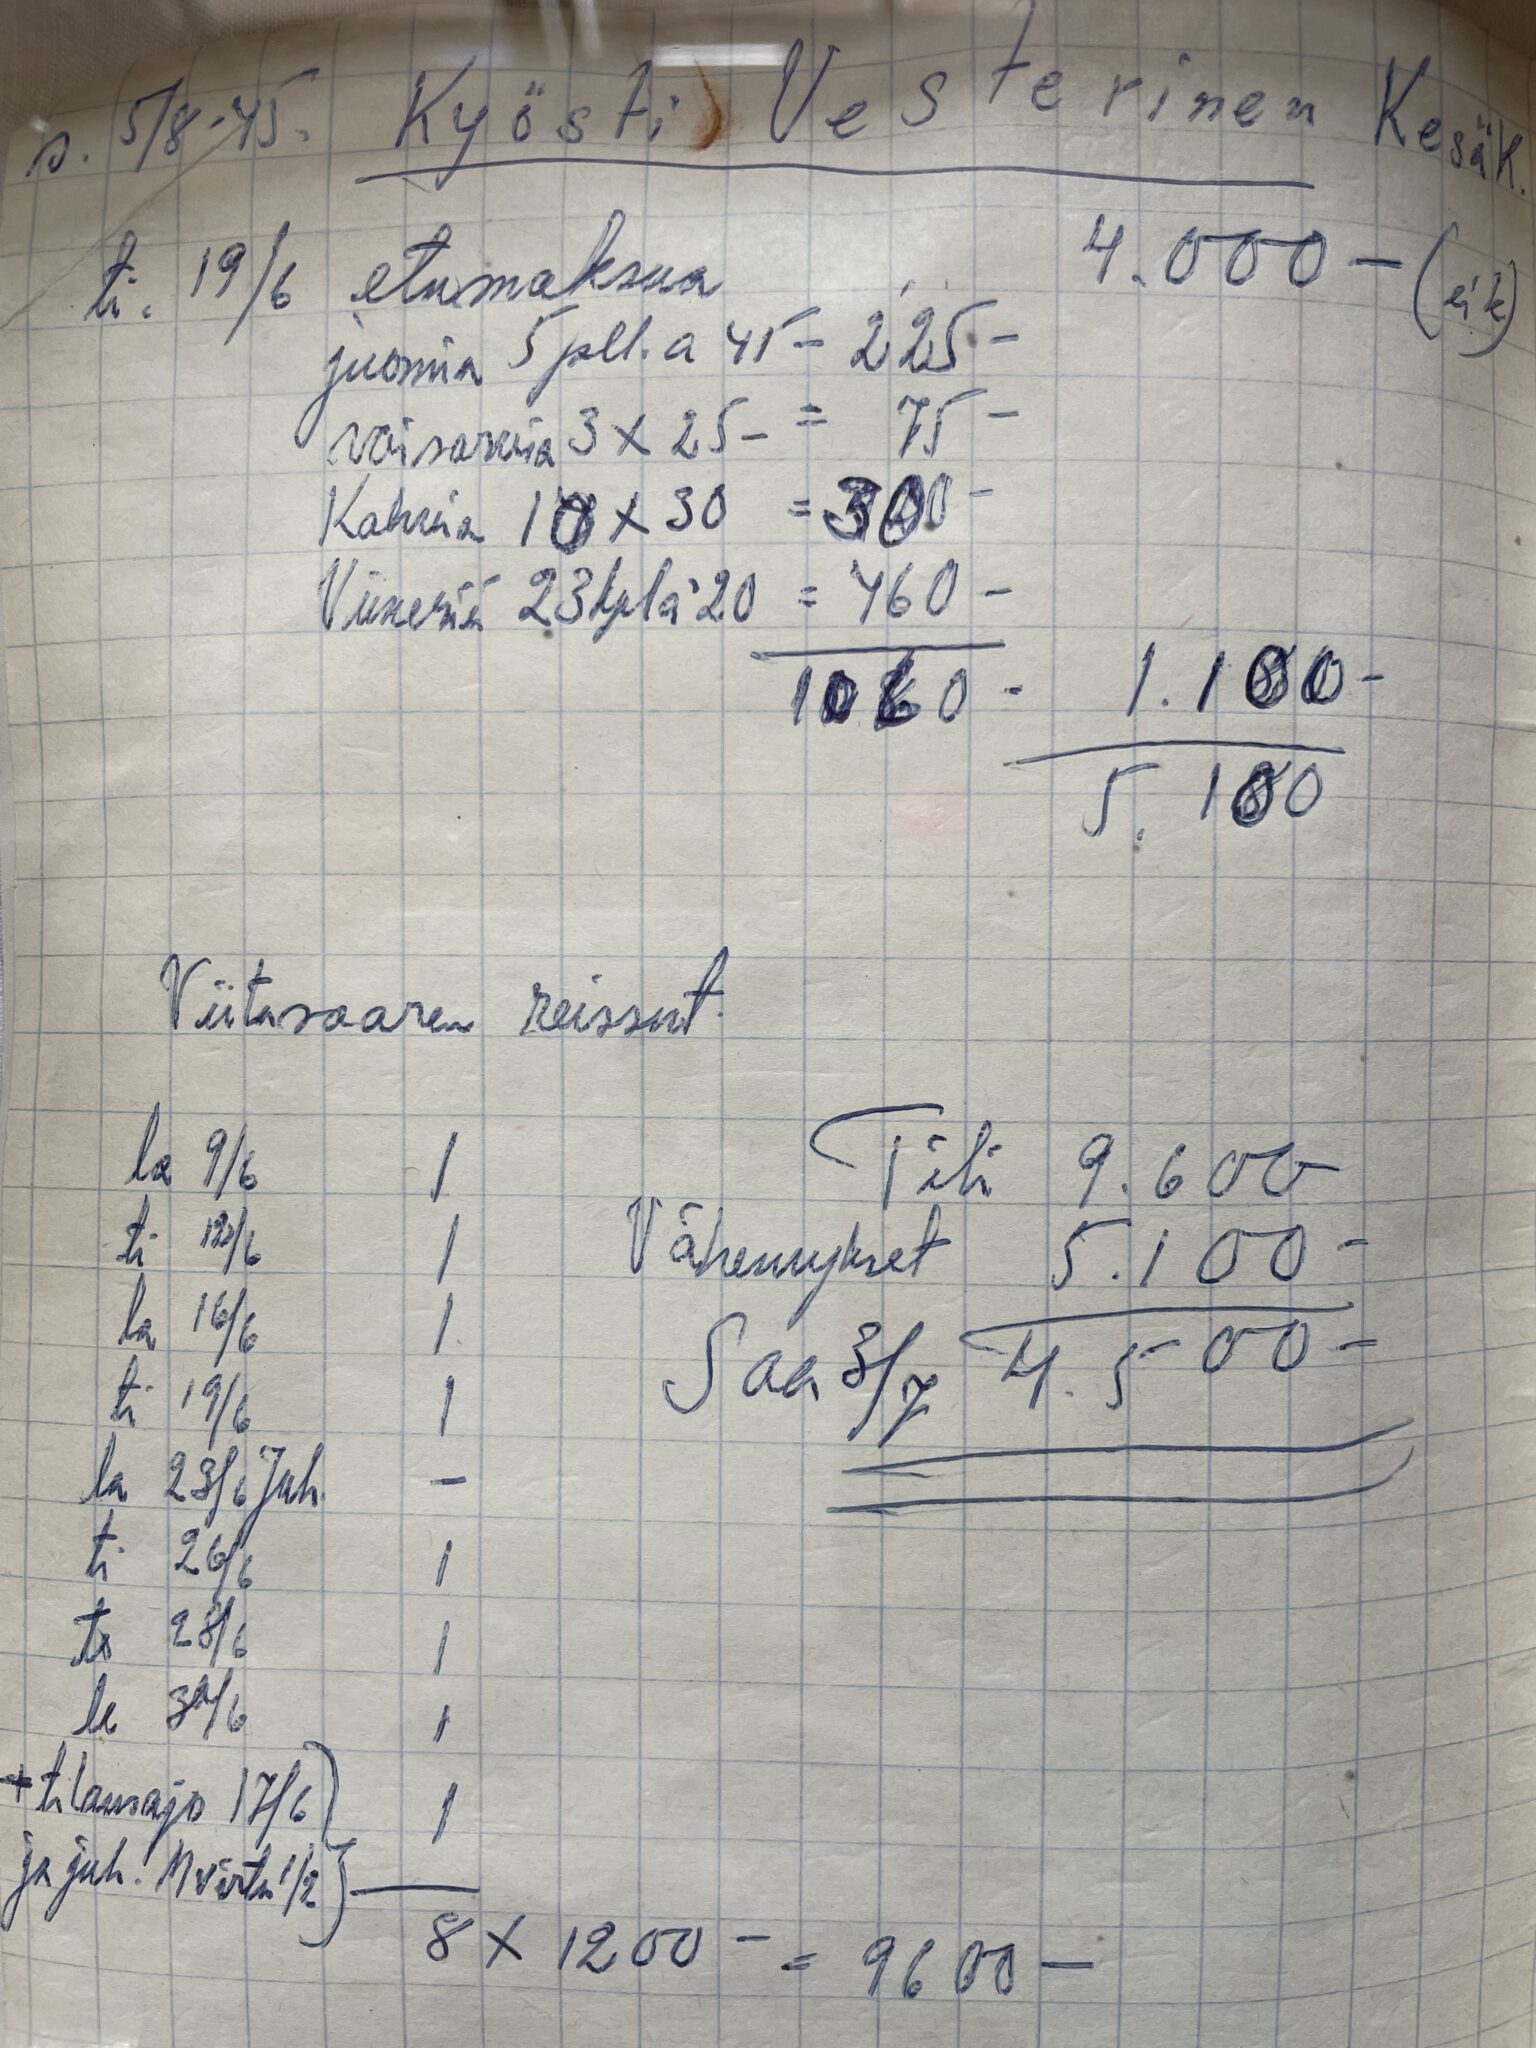 s. 5/8-45. Kyösti Vesterinen Kesäk.
ti. 19/6 etumaksua 4.000 - (eik)
juomia 5 pll. a 45 - 225 -
voisarvia 3 x 25 - = 75 -
Kahvia 10 x 30 = 300 -
Viineriä 23 kpl à 20 = 460 -
1060 - 1.100 -
5.100
Viitasaaren reissut.
la 9/6 1
ti 12/6 1
la 16/6 1
ti 19/6 1
la 23/6 Juh. -
ti 26/6 1
to 28/6 1
la 30/6 1
+ tilausajo 17/6 1
ja juh. 1/2
8 x 1200 - = 9600 -
Tili 9.600
Vähennykset 5.100 -
Saa 3/7 4.500 -